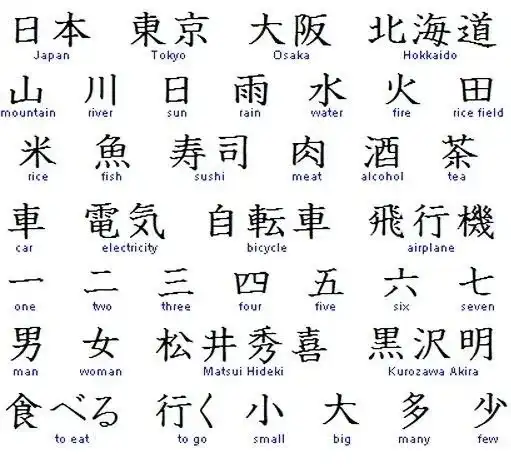 日本 東京 大阪 北海道
Japan Tokyo Osaka Hokkaido
山 川 日 雨 水 火 田
mountain river sun rain water fire rice field
米 魚 寿司 肉 酒 茶
rice fish sushi meat alcohol tea
車 電気 自転車 飛行機
car electricity bicycle airplane
一 二 三 四 五 六 七
one two three four five six seven
男 女 松井秀喜 黒沢明
man woman Matsui Hideki Kurozawa Akira
食べる 行く 小 大 多 少
to eat to go small big many few